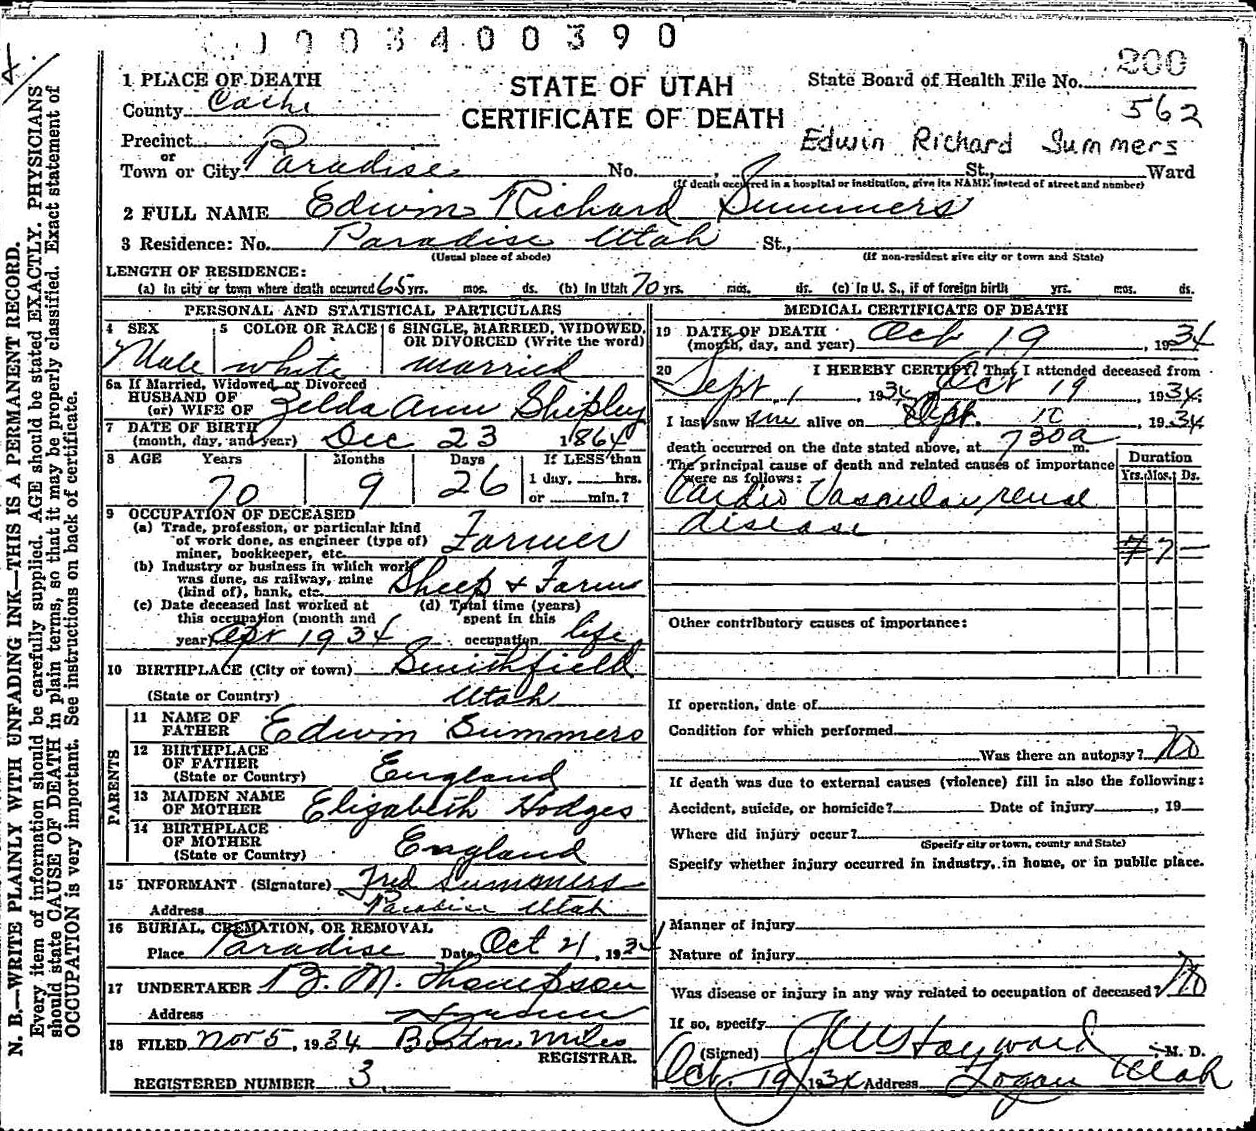 1003400390
200
1 PLACE OF DEATH
STATE OF UTAH
State Board of Health File No.
County Cache
CERTIFICATE OF DEATH
562
Precinct
Edwin Richard Summers
or
Town or City Paradise No. , St., Ward
(If death occurred in a hospital or institution, give its NAME instead of street and number)
2 FULL NAME Edwin Richard Summers
3 Residence: No. Paradise Utah St.,
(Usual place of abode) (If non-resident give city or town and State)
LENGTH OF RESIDENCE:
(a) In city or town where death occurred 65 yrs. mos. ds. (b) In Utah 70 yrs. mos. ds. (c) In U. S., if of foreign birth yrs. mos. ds.
PERSONAL AND STATISTICAL PARTICULARS
4 SEX 5 COLOR OR RACE 6 SINGLE, MARRIED, WIDOWED, OR DIVORCED (Write the word)
Male white married
6a If Married, Widowed, or Divorced
HUSBAND OF
(or) WIFE OF Zelda Ann Shipley
7 DATE OF BIRTH
(month, day, and year) Dec 23 1864
8 AGE Years Months Days If LESS than
1 day, hrs.
70 9 26 or min.?
9 OCCUPATION OF DECEASED
(a) Trade, profession, or particular kind
of work done, as engineer (type of)
miner, bookkeeper, etc. Farmer
(b) Industry or business in which work
was done, as railway, mine
(kind of), bank, etc. Sheep + Farms
(c) Date deceased last worked at
this occupation (month and
year) Apr 1934
(d) Total time (years)
spent in this
occupation life
10 BIRTHPLACE (City or town) Smithfield
(State or Country) Utah
PARENTS
11 NAME OF
FATHER Edwin Summers
12 BIRTHPLACE
OF FATHER
(State or Country) England
13 MAIDEN NAME
OF MOTHER Elizabeth Hodges
14 BIRTHPLACE
OF MOTHER
(State or Country) England
15 INFORMANT (Signature) Fred Summers
Address Paradise Utah
16 BURIAL, CREMATION, OR REMOVAL
Place Paradise Date Oct 21, 1934
17 UNDERTAKER B. M. Thompson
Address Hyrum
18 FILED Nov 5, 1934 Miles
REGISTRAR.
REGISTERED NUMBER 3
MEDICAL CERTIFICATE OF DEATH
19 DATE OF DEATH
(month, day, and year) Oct 19, 1934
20 I HEREBY CERTIFY, That I attended deceased from
Sept 1, 1934 Oct 19, 1934
I last saw him alive on Sept. 10, 1934
death occurred on the date stated above, at 730a m.
The principal cause of death and related causes of importance
were as follows:
Duration
Yrs. Mos. Ds.
Cardio Vascular renal
disease
7
Other contributory causes of importance:
If operation, date of
Condition for which performed
Was there an autopsy? No
If death was due to external causes (violence) fill in also the following:
Accident, suicide, or homicide? Date of injury , 19
Where did injury occur?
(Specify city or town, county and State)
Specify whether injury occurred in industry, in home, or in public place.
Manner of injury
Nature of injury
Was disease or injury in any way related to occupation of deceased? No
If so, specify
(Signed) Hayward, M. D.
Oct. 19 1934 Address Logan Utah
N. B.—WRITE PLAINLY WITH UNFADING INK—THIS IS A PERMANENT RECORD.
Every item of information should be carefully supplied. AGE should be stated EXACTLY. PHYSICIANS
should state CAUSE OF DEATH in plain terms, so that it may be properly classified. Exact statement of
OCCUPATION is very important. See instructions on back of certificate.